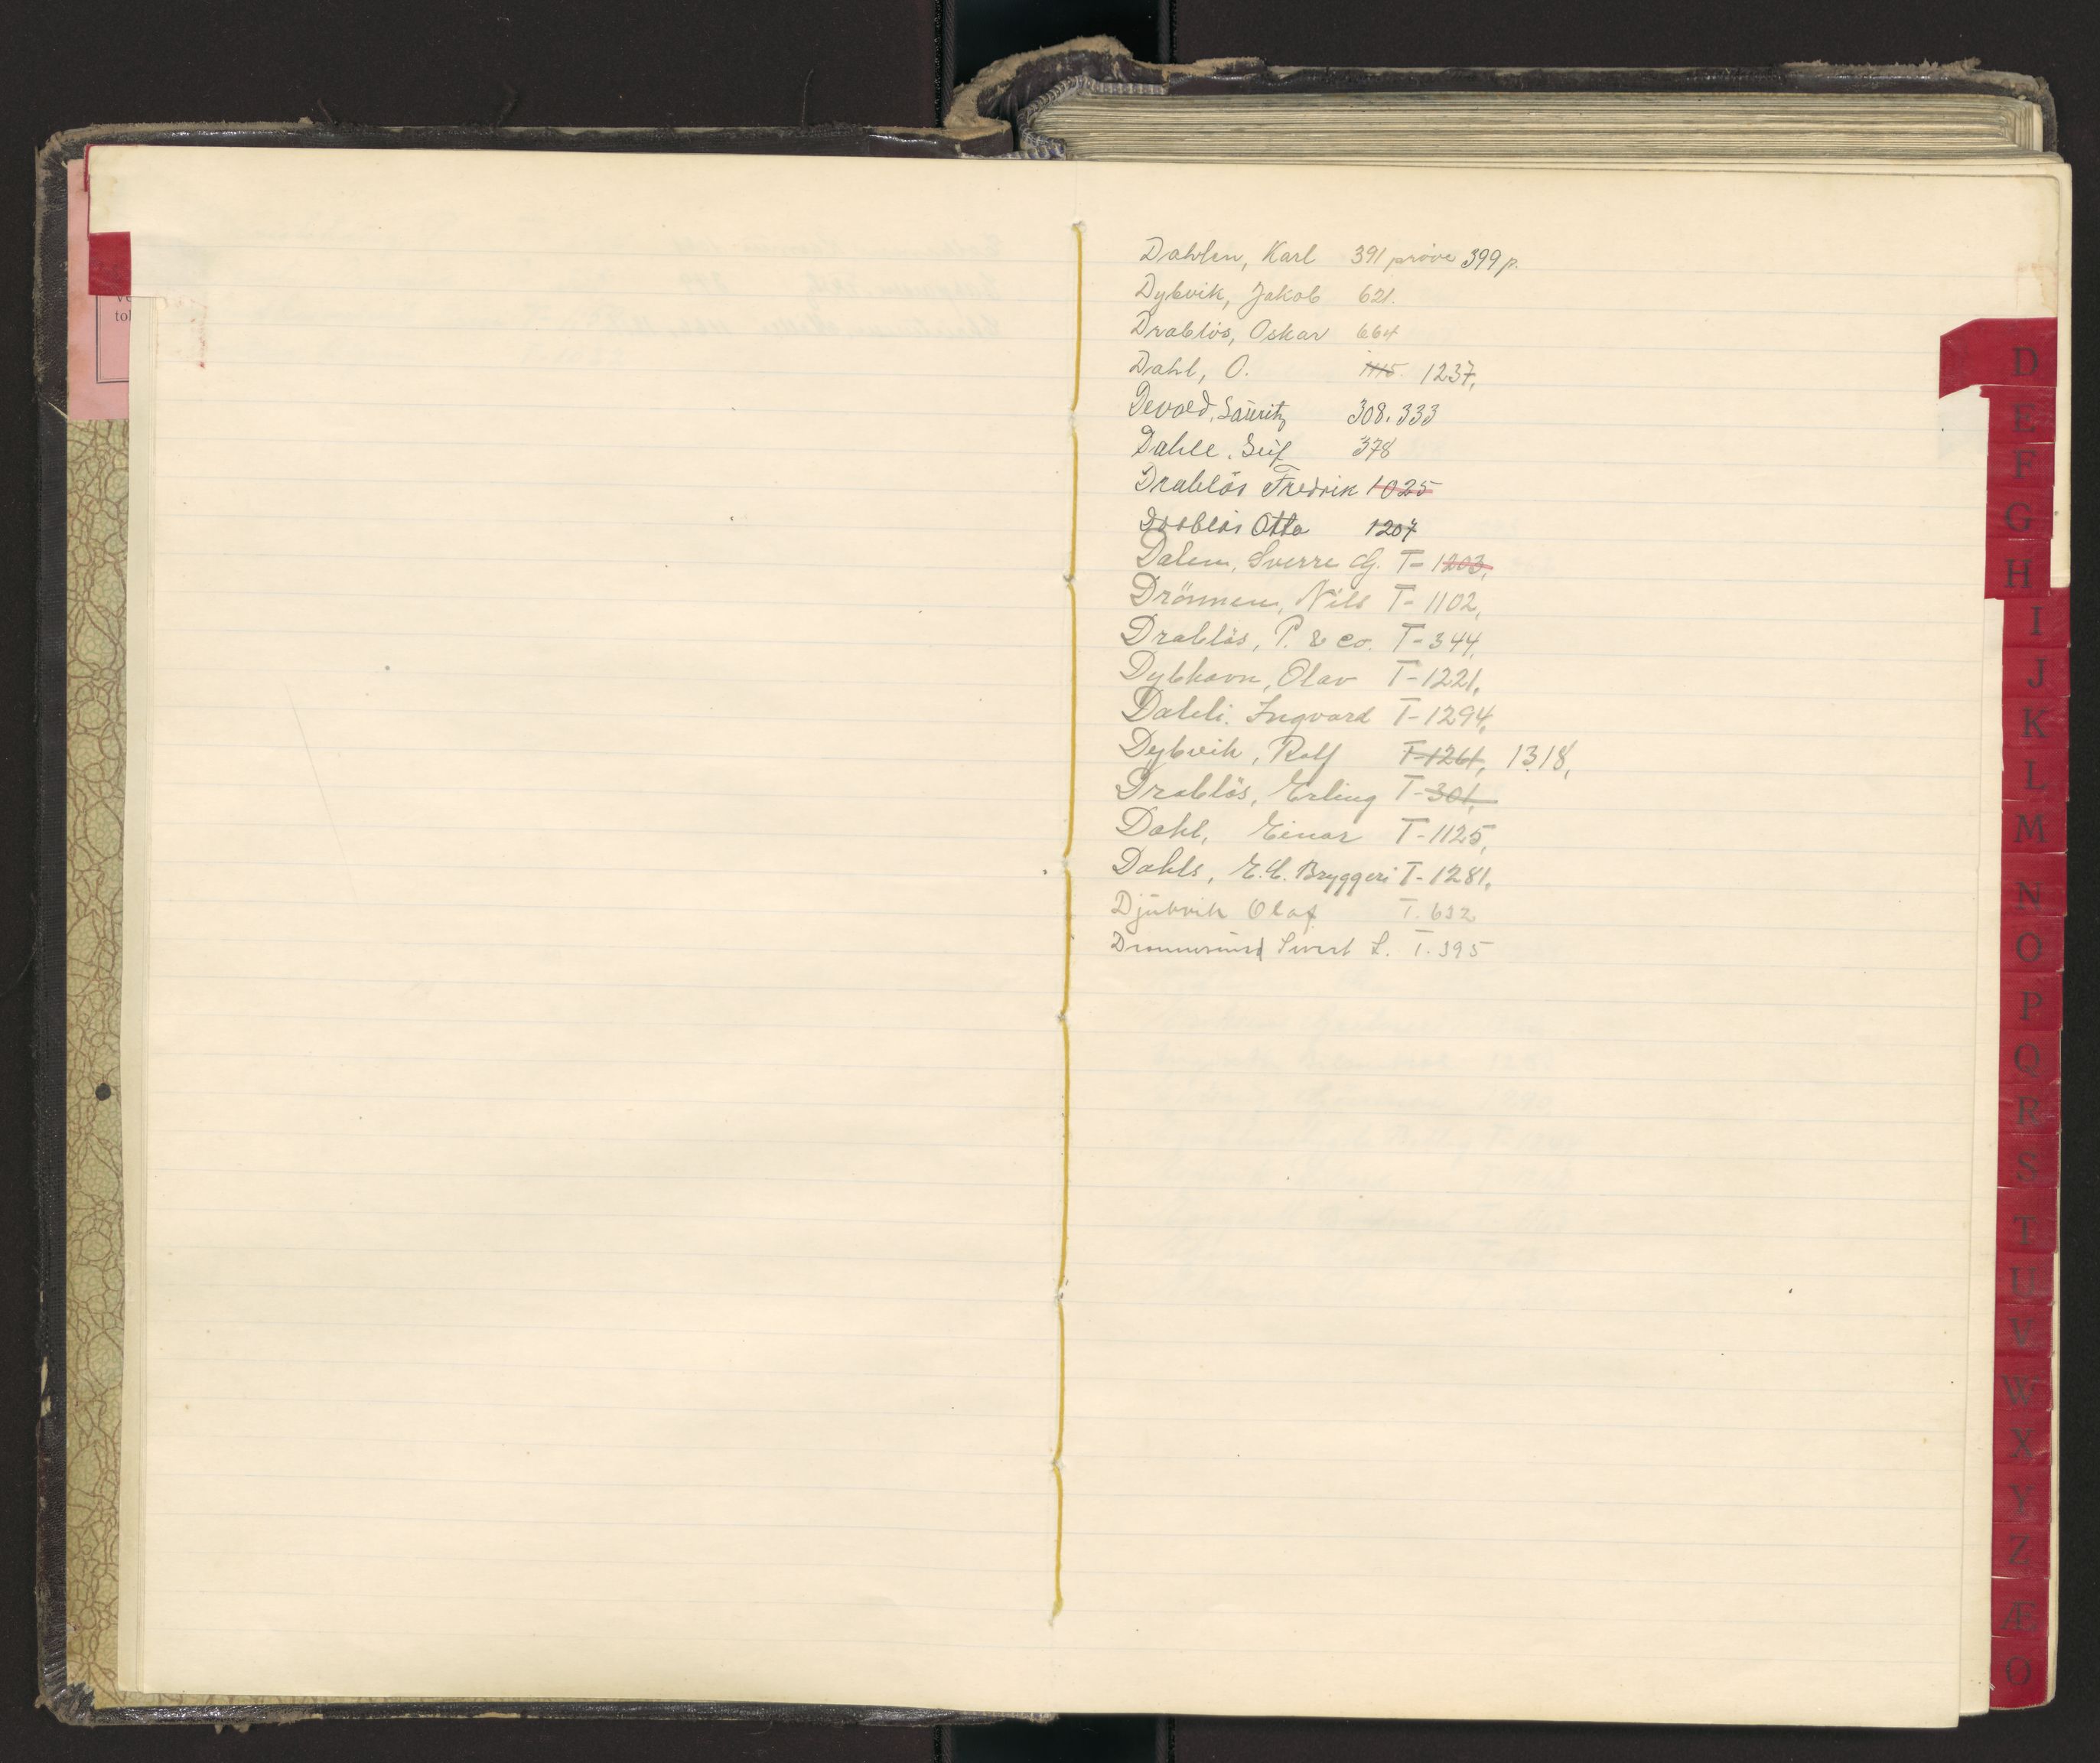 Dahlen, Karl 391 prøve 399 p.
Dybvik, Jakob 621.
Drabløs, Oskar 664
Dahl, O. 1115. 1237,
Devold, Lauritz 308. 333
Dahle, Leif 378
Drabløs Fredrik 1025
Drabløs Otto 1207
Dalem, Sverre G. T- 1203,
Drönnen, Nils T- 1102,
Drabløs, P. & co. T- 344,
Dybhavn, Olav T-1221,
Dahli. Ingvard T-1294,
Dybvik, Rolf T-1261, 1318,
Drabløs, Erling T-301,
Dahl, Einar T-1125,
Dahls, E.C. Bryggeri T-1281,
Djubvik Olaf T. 632
Sivert L. T. 395
D
E
F
G
H
I
J
K
L
M
N
O
P
Q
R
S
T
U
V
W
X
Y
Z
Æ
O